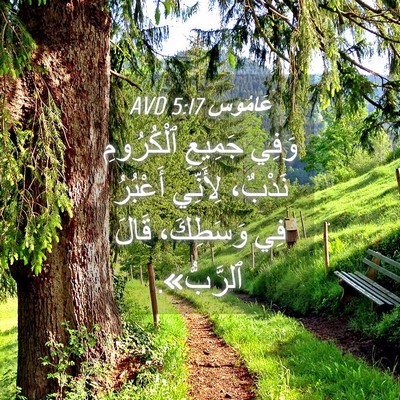 عَامُوس 5:17 AVD
وَفِي جَمِيعِ ٱلْكُرُومِ
نَدْبٌ، لِأَنِّي أَعْبُرُ
فِي وَسَطِكَ، قَالَ
ٱلرَّبُّ»